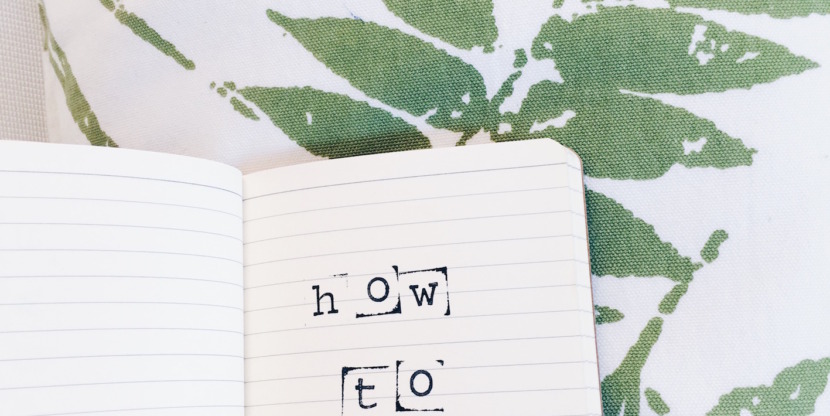 how
to